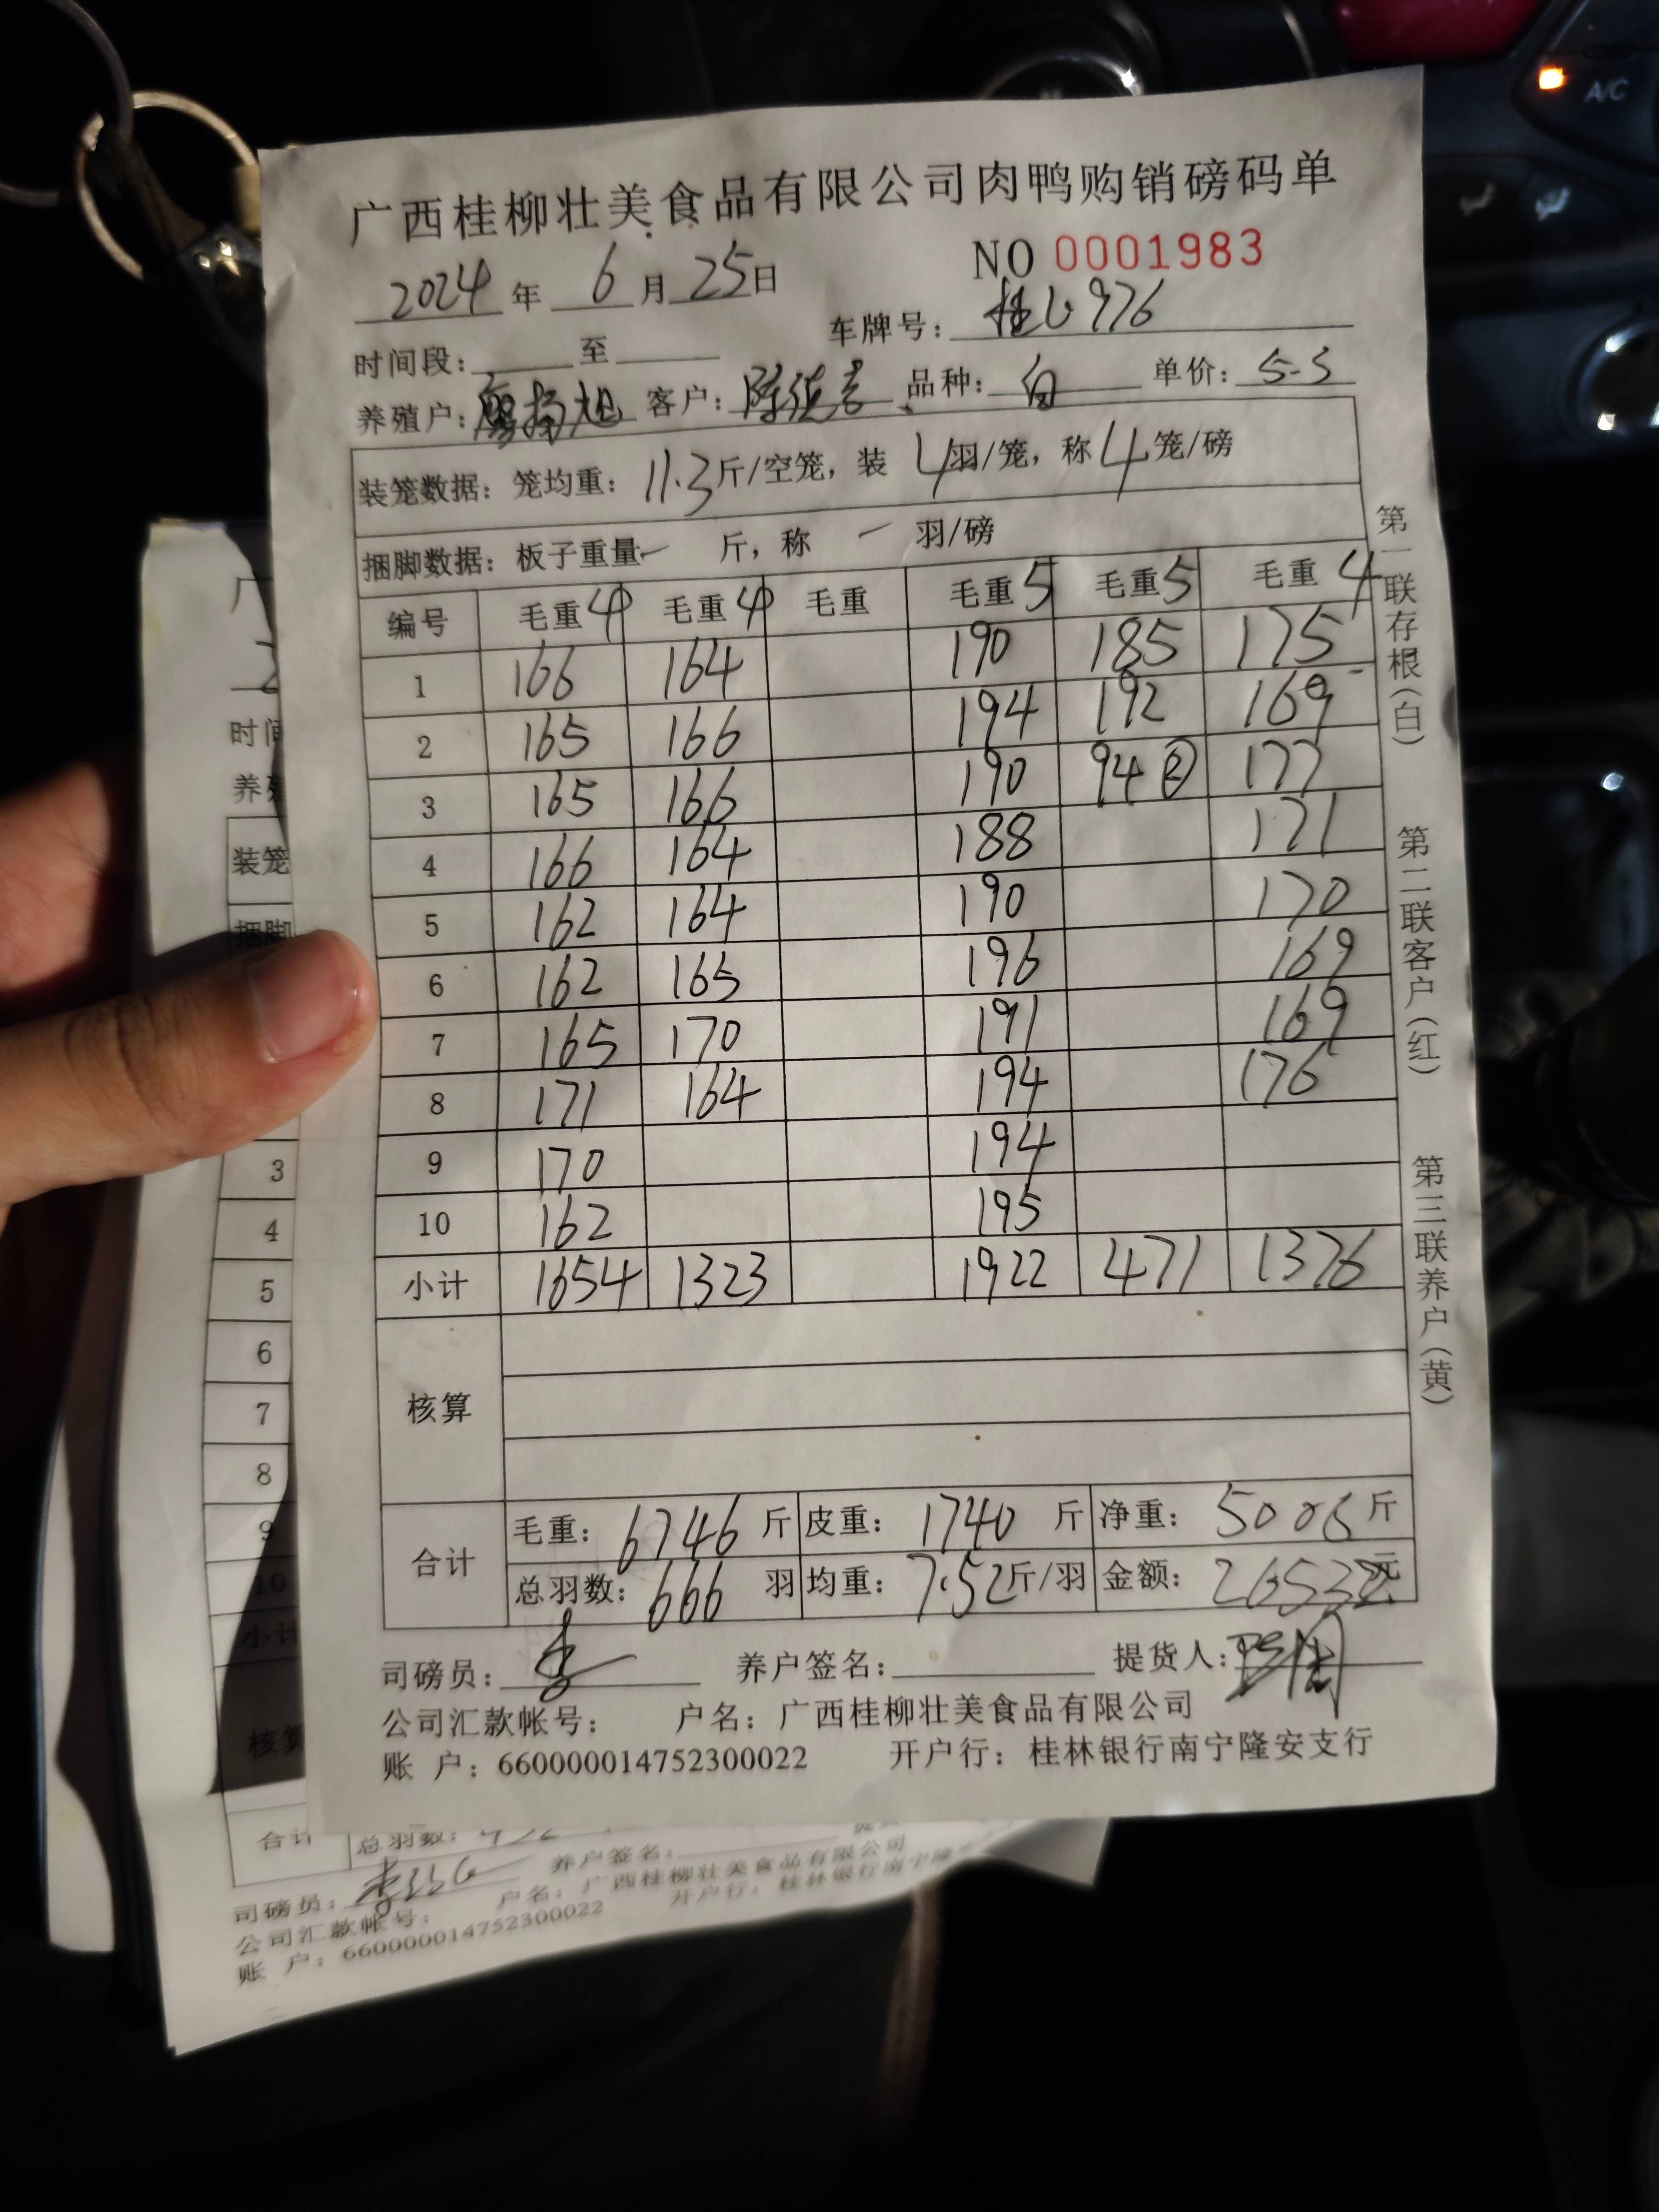 广西桂柳壮美食品有限公司肉鸭购销磅码单
2024 年 6 月 25日 NO 0001983
时间段: 至 车牌号: 976
养殖户: 客户: 品种: 白 单价: 5.3
装笼数据: 笼均重: 11.3斤/空笼, 装 4羽/笼, 称4笼/磅
捆脚数据: 板子重量 一 斤, 称 一 羽/磅
编号 毛重4 毛重4 毛重 毛重5 毛重5 毛重4
1 166 164 190 185 175
2 165 166 194 192 169
3 165 166 190 94② 177
4 166 164 188 171
5 162 164 190 170
6 162 165 196 169
7 165 170 191 169
8 171 164 194 176
9 170 194
10 162 195
小计 1654 1323 1922 471 1376
核算
合计 毛重: 6746 斤 皮重: 1740 斤 净重: 5006斤
总羽数: 666 羽 均重: 7.52斤/羽 金额: 26532元
司磅员: 李 养户签名: 提货人:
公司汇款帐号: 户名: 广西桂柳壮美食品有限公司
账 户: 660000014752300022 开户行: 桂林银行南宁隆安支行
第一联存根(白)
第二联客户(红)
第三联养户(黄)
广
2
时间
养殖
装笼
捆脚
3
4
5
6
7
8
9
10
小计
核算
合计 总羽数:
司磅员: 养户签名:
公司汇款帐号: 户名: 广西桂柳壮美食品有限公司
账 户: 660000014752300022 开户行: 桂林银行南宁隆
A/C